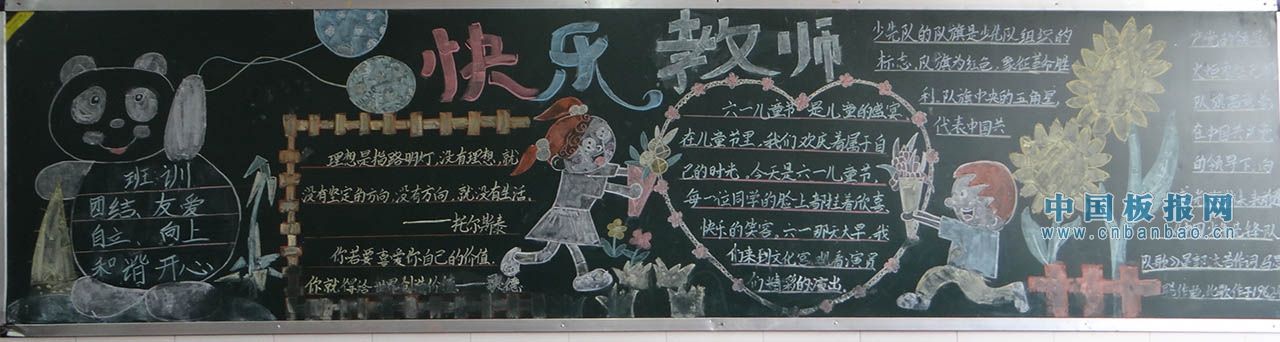 快乐教师
班训
团结、友爱
自立、向上
和谐开心
理想是指路明灯,没有理想,就
没有坚定的方向,没有方向,就没有生活。
——托尔斯泰
你若要喜爱你自己的价值,
你就得给世界创造价值——歌德
六一儿童节,是儿童的盛宴
在儿童节里,我们欢庆着属于自
己的时光,今天是六一儿童节,
每一位同学的脸上都挂着欣喜
快乐的笑容,六一那天大早,我
们来到文化宫,观看演员
们精彩的演出
少先队的队旗是少先队组织的
标志,队旗为红色,象征革命胜
利,队旗中央的五角星,
代表中国共
产党的领导
火炬
队旗
在中国共产党
的领导下,向
中国板报网
www.cnbanbao.cn